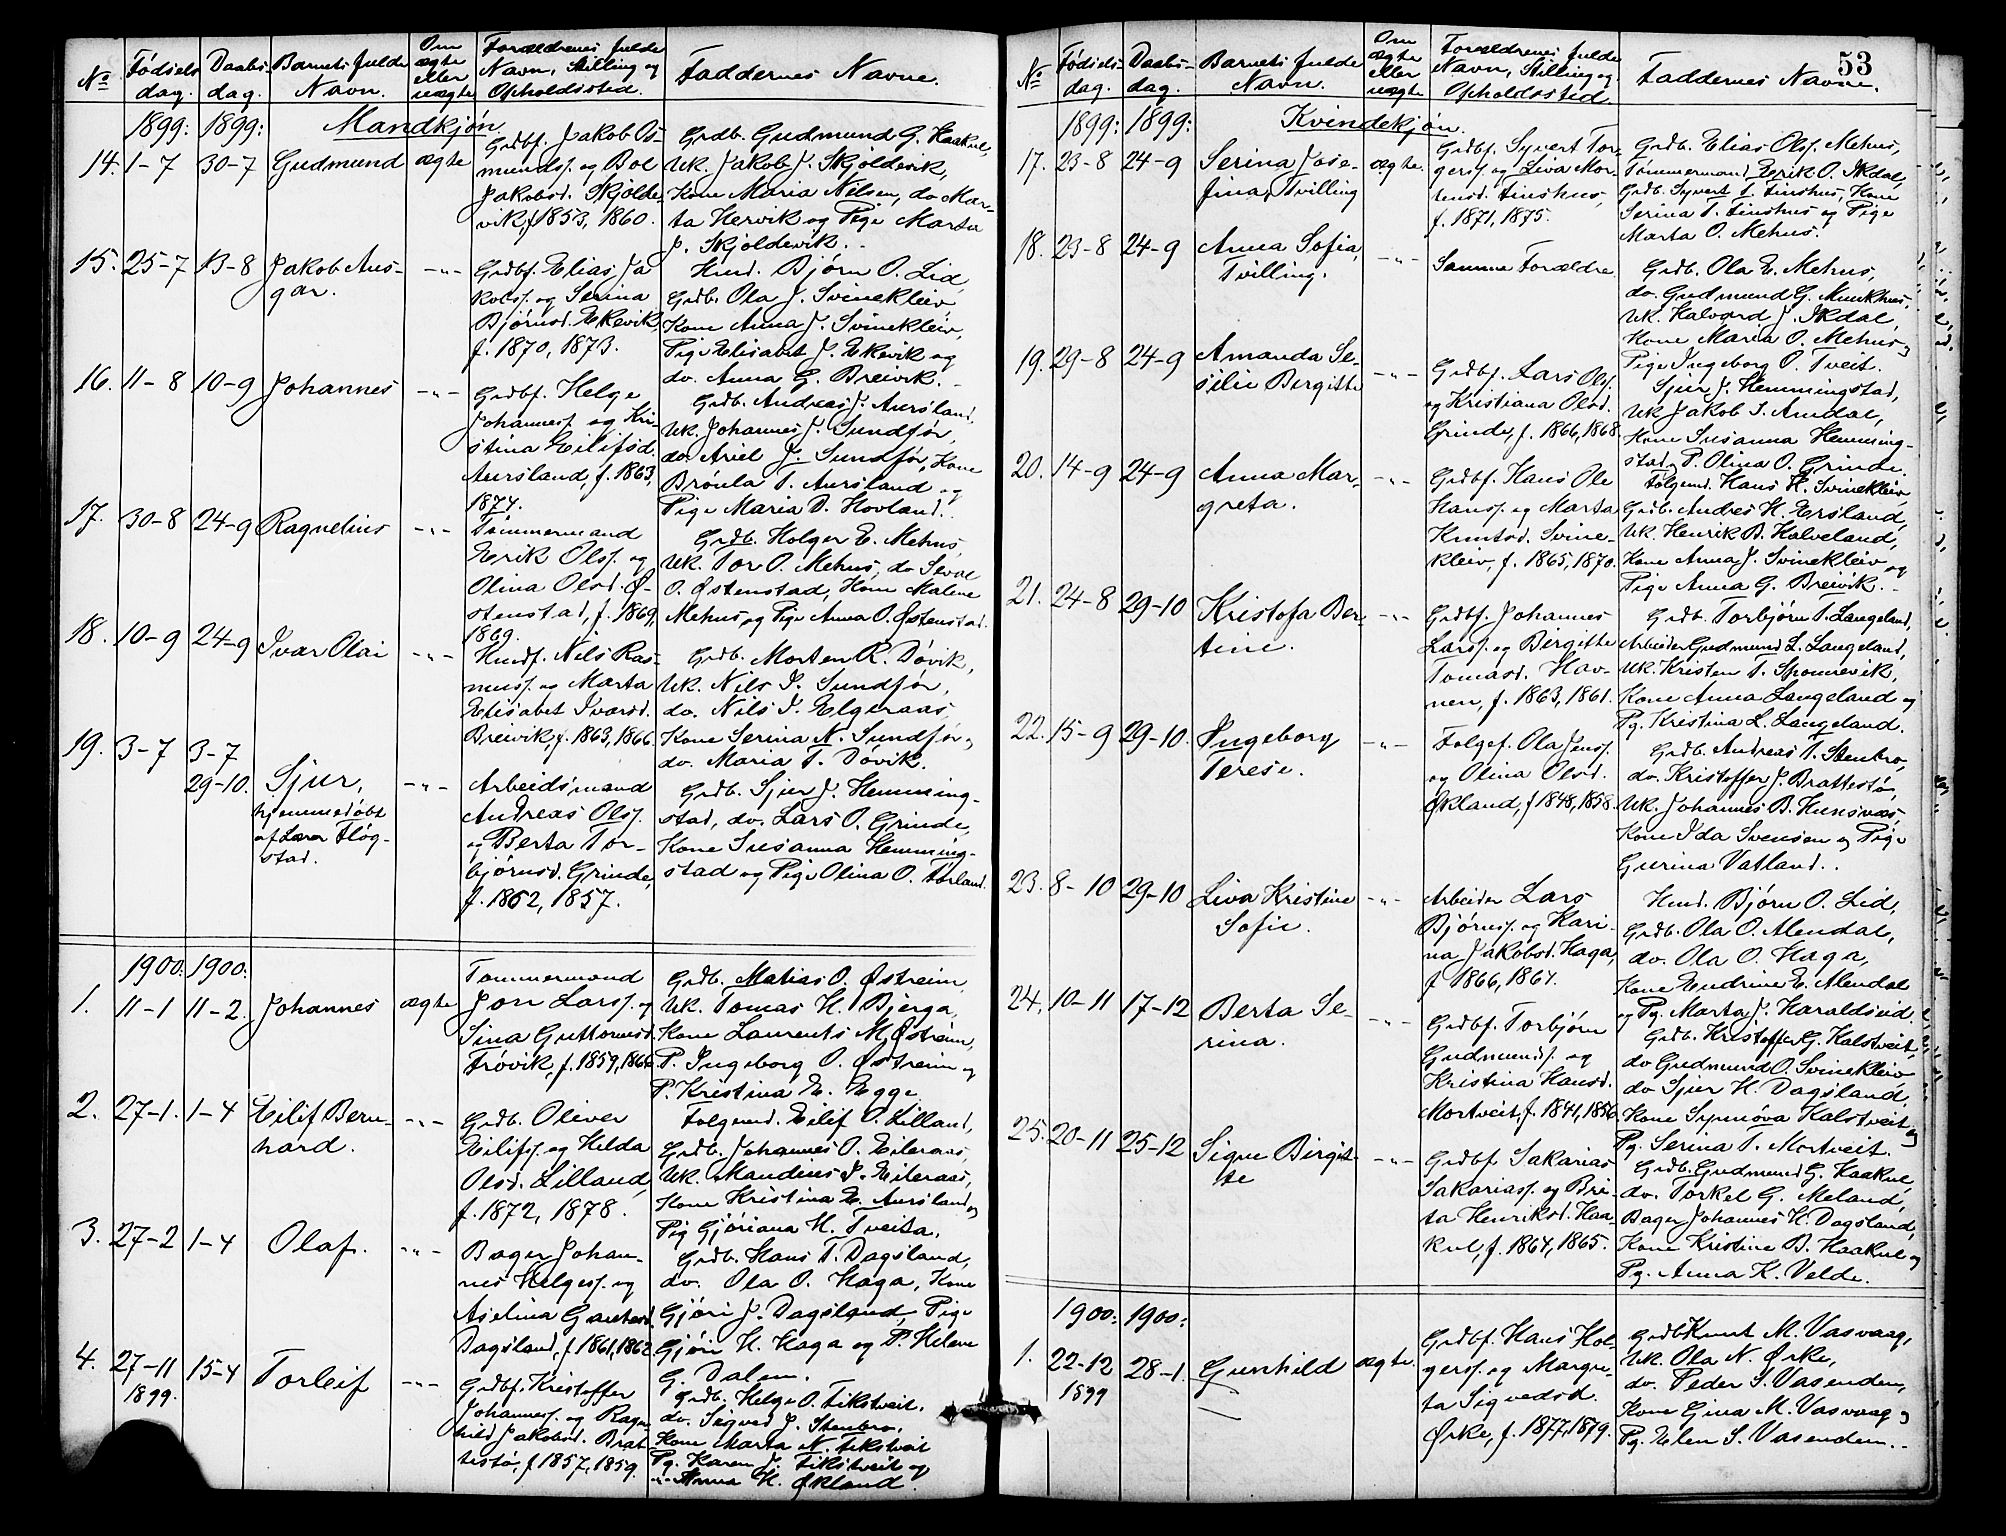 No
Fødsels-
dag.
Daabs-
dag.
Barnets fulde
Navn.
Om
ægte
eller
uægte
Forældrenes fulde
Navn, Stilling og
Opholdssted.
Faddernes Navne.
1899: 1899:
Mandkjøn.
14. 1-7 30-7 Gudmund ægte
Grdbf. Jakob Os-
mundss. og Bol
Jakobsd. Skjolde-
vik, f. 1853, 1860.
Grdb. Gudmund G. Haakul,
Uk. Jakob J. Skjoldevik,
Kone Maria Nilsen, do Mar-
ta Hervik og Pige Marta
J. Skjoldevik.
15. 25-7 13-8 Jakob Ans-
gar.
-"-
Grdbf. Elias Ja-
kobss. og Serina
Bjørnsd. Ekevik,
f. 1870, 1873.
Husd. Bjørn O. Lid,
Grdb. Ola J. Svinekleiv,
Kone Anna J. Svinekleiv,
Pige Elisabet J. Ekevik og
do. Anna G. Breivik.
16. 11-8 10-9 Johannes
-"-
Grdbf. Helge
Johanness. og Kri-
stina Eilifsd.
Aursland, f. 1863,
1874.
Grdb. Andreas J. Aursland,
Uk. Johannes J. Sundfør,
do. Ariel J. Sundfør, Kone
Brønla T. Aursland og
Pige Maria D. Hovland.
17. 30-8 24-9 Ragnelius
-"-
Tømmermand
Erik Olss. og
Olina Olsd. Ø-
stenstad, f. 1869,
1869.
Grdb. Holger E. Mehus,
Uk. Tor O. Mehus, do Sevat
O. Østenstad, Kone Malene
Mehus, og Pige Anna O. Østenstad.
18. 10-9 24-9 Ivar Olai
-"-
Husdf. Nils Ras-
muss. og Marta
Elisabet Ivarsd.
Breivik, f. 1863, 1866
Grdb. Morten R. Døvik,
Uk. Nils I. Sundfør,
do. Nils I. Elgeraas,
Kone Serina N. Sundfør og
do. Maria T. Døvik.
19. 3-7 3-7
29-10. Sjur,
hjemmedøbt
af Lærer Fløg-
stad.
-"-
Arbeidsmand
Andreas Olss.
og Berta Tor-
bjørnsd. Grinde,
f. 1852, 1857.
Grdb. Sjur J. Hemming-
stad, do. Lars O. Grinde,
Kone Susanna Hemming-
stad og Pige Olina O. Førland.
1900: 1900:
1. 11-1 11-2. Johannes ægte
Tømmermand
Jon Larss. og
Sina Guttormsd.
Frøvik, f. 1859, 1866.
Grdb. Matias O. Østreim,
Uk. Tomas H. Bjerga,
Kone Laurents M. Østreim,
P. Ingeborg O. Østreim og
P. Kristina E. Egge.
2. 27-1. 1-4 Eilif Bern-
hard.
-"-
Grdb. Oliver
Eilifss. og Hilda
Olsd. Lilland,
f. 1872, 1878.
Folgemd. Eilif O. Lilland,
Grdb. Johannes O. Eileraas,
Uk. Mandius I. Eileraas,
Kone Kristina E. Aursland og
Pig Gjøriana H. Tveita.
3. 27-2 1-4 Olaf.
-"-
Bager Johan-
nes Helgess. og
Aselina Gautesd.
Dagsland, f. 1861, 1862.
Grdb. Hans T. Dagsland,
do. Ola O. Haga, Kone
Gjøri J. Dagsland, Pige
Gjøri H. Haga og P. Helene
G. Dalen.
4. 27-11
1899.
15-4 Torleif
-"-
Grdbf. Kristoffer
Johanness. og Ragn-
hild Jakobsd. Brat-
testø, f. 1857, 1859.
Grdb. Helge O. Fikstveit,
do. Sigved J. Stenbro,
Kone Marta N. Fikstveit
Pg. Karen J. Fikstveit og
-"- Anna H. Økland.
53
No
Fødsels-
dag.
Daabs-
dag.
Barnets fulde
Navn.
Om
ægte
eller
uægte
Forældrenes fulde
Navn, Stilling og
Opholdssted.
Faddernes Navne.
1899: 1899:
Kvindekjøn.
17. 23-8 24-9 Serina Jose-
fina, Tvilling
ægte.
Grdbf. Syvert Tor-
gerss. og Liva Mor-
tensd. Finshus,
f. 1871, 1875.
Grdb. Elias Olss. Mehus,
Tømmermand Erik O. Ikdal,
Grdb. Syvert T. Finshus, Kone
Serina T. Finshus og Pige
Marta O. Mehus.
18. 23-8 24-9 Anna Sofia,
Tvilling.
-"-
Samme Forældre
Grdb. Ola E. Mehus,
do. Gudmund G. Munkhus,
Uk. Halvard J. Ikdal,
Kone Maria O. Mehus og
Pige Ingeborg O. Tveit.
19. 29-8 24-9 Amanda Se-
silie Birgitte
-"-
Grdbf. Lars Olss.
og Kristiana Olsd.
Grinde, f. 1866, 1868
Sjur J. Hemmingstad,
Uk Jakob S. Amdal,
Kone Susanna Hemming-
stad, P. Olina O. Grinde.
20. 14-9 24-9 Anna Mar-
greta.
-"-
Grdbf. Hans Ole
Hanss. og Marta
Knutsd. Svine-
kleiv, f. 1865, 1870.
Folgemd. Hans H. Svinekleiv,
Grdb. Andres H. Ersland,
Uk. Henrik B. Halveland,
Kone Anna J. Svinekleiv og
Pige Anna G. Breivik.
21. 24-8 29-10 Kristofa Ber-
tine.
-"-
Grdbf. Johannes
Larss. og Birgitte
Tomasd. Hav-
nen, f. 1863, 1861.
Grdb. Torbjørn T. Langeland,
Arbeider Gudmund L. Langeland,
Uk. Kristen T. Sponnevik,
Kone Anna Langeland og
Pg. Kristina L. Langeland.
22. 15-9 29-10. Ingeborg
Terese.
-"-
Folgef. Ola Jenss.
og Olina Olsd.
Økland, f 1848, 1858.
Grdb. Andreas T. Stenbro,
do. Kristoffer J. Brattestø,
Uk. Johannes B. Hunsvæs,
Kone Ida Svensen og Pige
Gurina Vatland.
23. 8-10 29-10 Liva Kristine
Sofie.
-"-
Arbeider Lars
Bjørnss. og Kari-
na Jakobsd. Haga,
f 1866, 1867.
Husd. Bjørn O. Lid,
Grdb. Ola O. Alendal,
do. Ola O. Haga,
Kone Endrine E. Alendal
og Pg. Marta J. Haraldseid.
24. 10-11 17-12 Berta Se-
rina.
-"-
Grdbf. Torbjørn
Gudmunds. og
Kristina Hansd.
Mortveit, f. 1841, 1856
Grdb. Kristoffer G. Kalstveit,
do Gudmund O. Svinekleiv
do Sjur H. Dagsland,
Kone Synnøva Kalstveit og
Pg. Serina T. Mortveit.
25. 20-11 25-12 Signe Birgit-
te
-"-
Grdbf. Sakarias
Sakariass. og Bri-
ta Henriksd. Haa-
kul, f. 1864, 1865.
Grdb. Gudmund G. Haakul,
do. Torkel G. Meland,
Bager Johannes H. Dagsland,
Kone Kristine B. Haakul og
Pg. Anna K. Velde.
1900: 1900:
1. 22-12
1899
28-1 Gunhild ægte.
Grdbf. Hans Hol-
gerss. og Margre-
ta Sigvedsd.
Ørke, f. 1877, 1879.
Grdb Knut M. Vasvaag,
Uk. Ola N. Ørke,
do. Peder S. Vasenden,
Kone Gina M. Vasvaag og
Pg. Elen S. Vasenden.